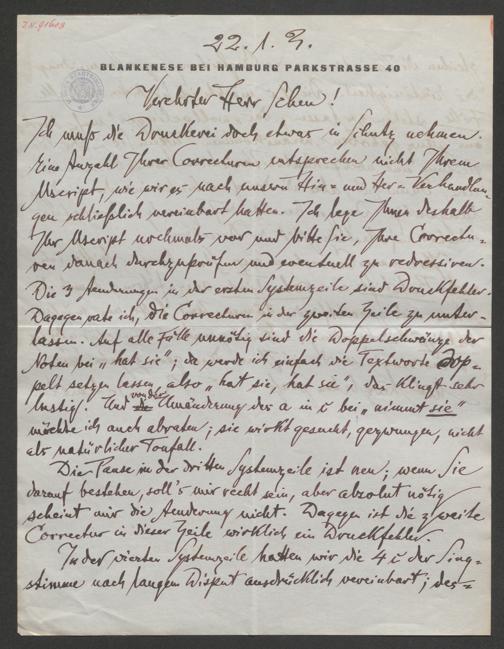 I.N. 91609
22. 1. 2.
BLANKENESE BEI HAMBURG PARKSTRASSE 40
Verehrter Herr Scheu!
Ich muß die Druckerei doch etwas in Schutz nehmen.
Eine Anzahl Ihrer Correcturen entsprechen nicht Ihrem
Mscript, wie wir es nach unsern Hin- und Her-Verhandlun-
gen schließlich vereinbart hatten. Ich lege Ihnen deshalb
Ihr Mscript nochmals vor und bitte Sie, Ihre Correctu-
ren danach durchzuprüfen und eventuell zu redressiren.
Die 3 Aenderungen in der ersten Systemzeile sind Druckfehler.
Dagegen rate ich, die Correcturen in der zweiten Zeile zu unter-
lassen. Auf alle Fälle unnötig sind die Doppelschwänze der
Noten bei „hat sie"; da werde ich einfach die Textworte dop-
pelt setzen lassen, also „hat sie, hat sie", das klingt sehr
lustig. Und von der Umänderung des a in c bei „nimmt sie"
möchte ich auch abraten; sie wirkt gesucht, gezwungen, nicht
als natürlicher Tonfall.
Die Pause in der dritten Systemzeile ist neu; wenn Sie
darauf bestehen, soll's mir recht sein, aber absolut nötig
scheint mir die Aenderung nicht. Dagegen ist die zweite
Correctur in dieser Zeile wirklich ein Druckfehler.
In der vierten Systemzeile hatten wir die 4 c der Sing-
stimme nach langem Disput ausdrücklich vereinbart; des-